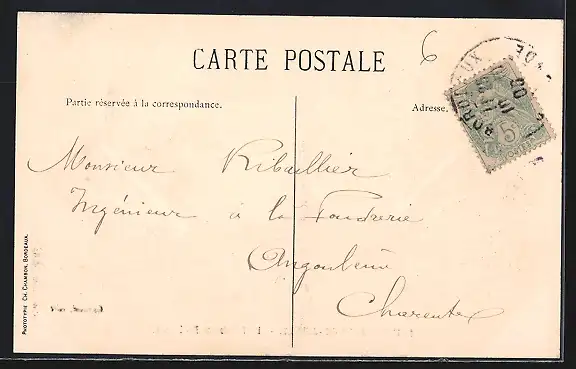 CARTE POSTALE
6
Partie réservée à la correspondance.
Adresse.
BORDEAUX
5
Monsieur Ribaillier
Ingénieur à la Poudrerie
Angoulême
Charente
PHOTOTYPIE CH. CHAMBON, BORDEAUX.